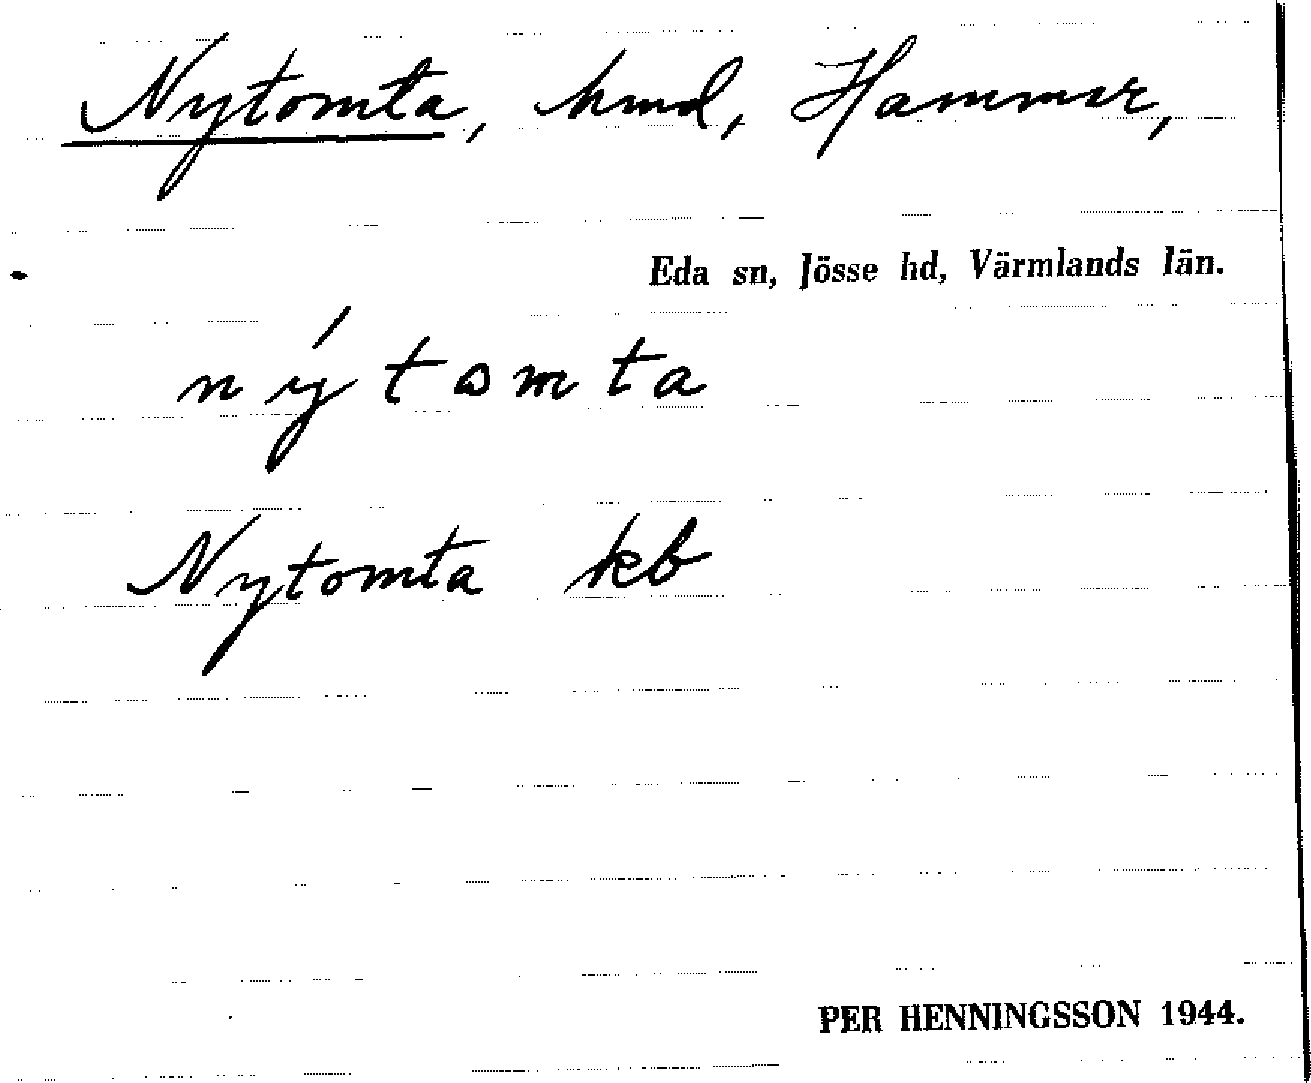 Nytomta, hmd, Hammar,
Eda sn, Jösse hd, Värmlands län.
nýtomta
Nytomta kb
PER HENNINGSSON 1944.